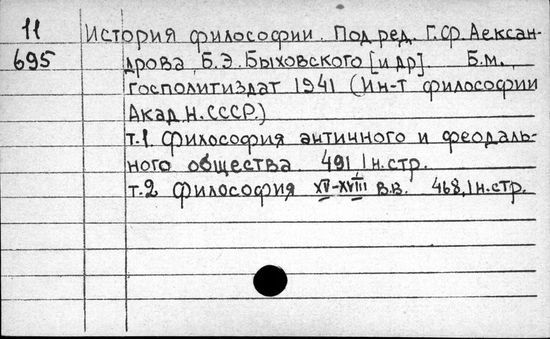 11 История философии. Под ред. Г.Ф. Аексан-
695 дрова, Б.Э. Быховского [и др]. Б.м.,
Госполитиздат 1941 (Ин-т философии
Акад. Н. СССР.)
т.1. Философия античного и феодаль-
ного общества. 491, 1 н.стр.
т.2 Философия XV-XVIII в.в. 468, 1 н.стр.